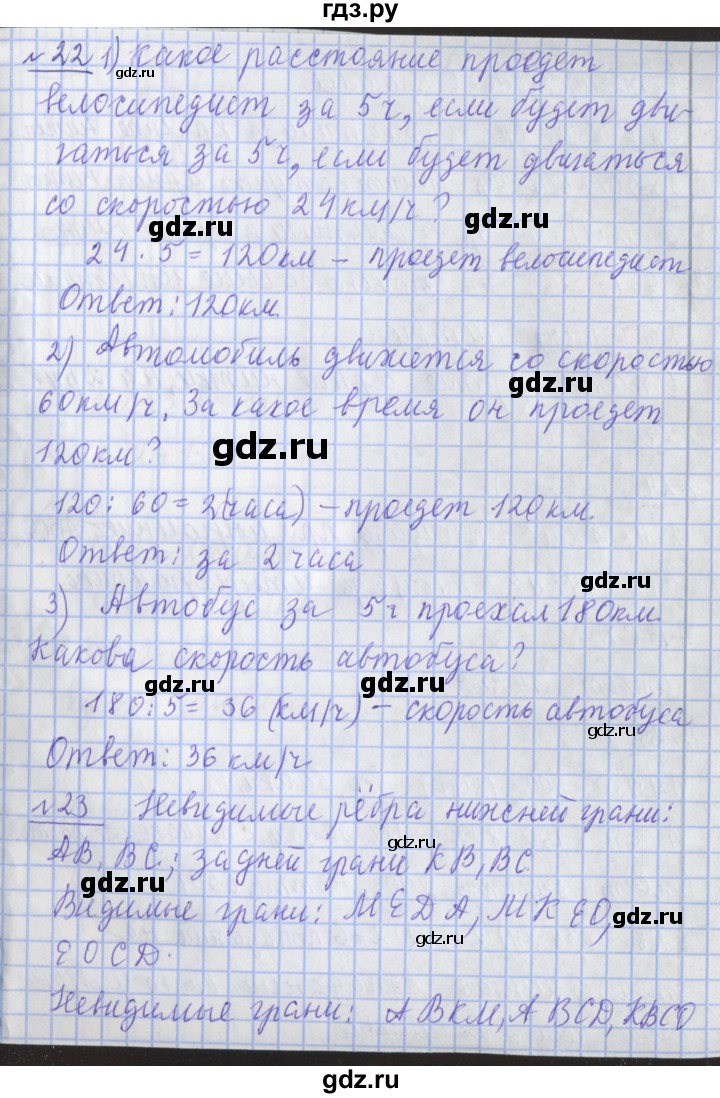 гдз.ру
№22 1) Какое расстояние проедет
gdz.ru
велосипедист за 5ч, если будет дви-
gdz.ru
гаться за 5ч, если будет двигаться
со скоростью 24км/ч?
gdz.ru
gdz.ru
24 · 5 = 120км – проедет велосипедист
Ответ: 120км.
gdz.ru
2) Автомобиль движется со скоростью
gdz.ru
60км/ч. За какое время он проедет
120км?
gdz.ru
120 : 60 = 2(часа) – проедет 120км.
gdz.ru
Ответ: за 2 часа
gdz.ru
3) Автобус за 5ч проехал 180км.
Какова скорость автобуса?
gdz.ru
180:5= 36 (км/ч) – скорость автобуса
gdz.ru
Ответ: 36 км/ч
№23 Невидимые рёбра нижней грани:
gdz.ru
АВ, ВС; задней грани КВ, ВС
gdz.ru
Видимые грани: МЕДА, МКЕО,
gdz.ru
gdz.ru
ЕОСД.
Невидимые грани: АВКМ, АВСД, КВСО
gdz.ru
gdz.ru